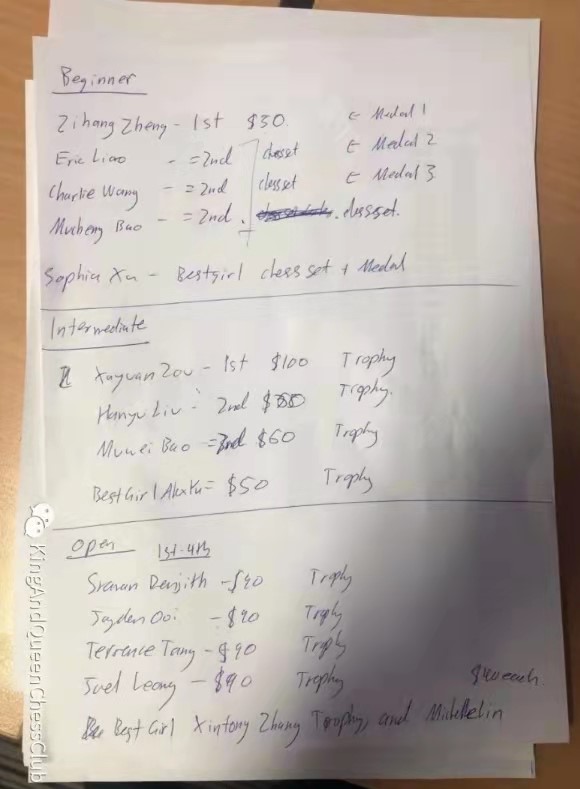 Beginner
Zihang Zheng - 1st $30. E Medal 1
Eric Liao - =2nd chesset E Medal 2
Charlie Wang - =2nd chesset E Medal 3
Mucheng Bao - =2nd. chessset.
Sophia Xu - Bestgirl chess set + Medal
Intermediate
Xuyuan Zou - 1st $100 Trophy
Hanyu Liu - 2nd Trophy.
Muwei Bao =2nd $60 Trophy
Best Girl = $50 Trophy
Open 1st-4th
Denjith - $90 Trophy
Jayden Ooi - $90 Trophy
Terrence Tang - $90 Trophy
Joel Leong - $90 Trophy
each.
Best Girl Xintong Zhang Trophy, and
KingAndQueenChessClub